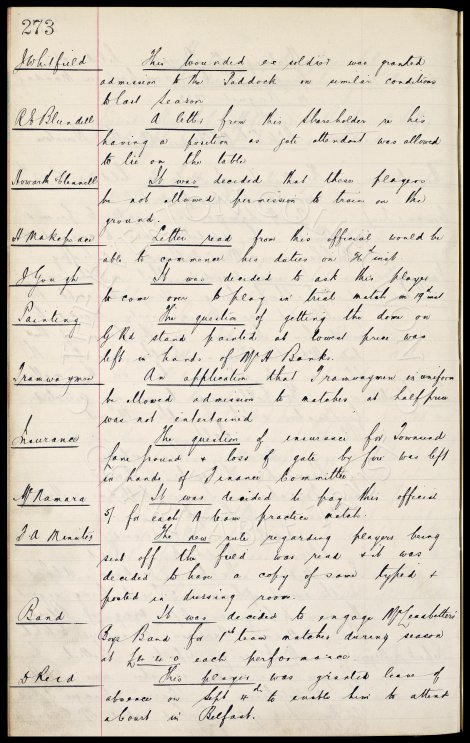 273
J Whitfield This wounded ex soldier was granted
admission to the Paddock on similar conditions
to last season
R A Blundell A letter from this shareholder re his
having a position as gate attendant was allowed
to lie on the table
Howarth & It was decided that these players
be not allowed permission to train on the
ground.
H Makepeace Letter read from this official would be
able to commence his duties on inst
J Gough It was decided to ask this player
to come over to play in trial match on 19th inst
Painting The question of getting the dome on
G Rd stand painted at lowest price was
left in hands of Mr H Banks.
Tramwaymen An application that Tramwaymen in uniform
be allowed admission to matches at half price
was not entertained
Insurance The question of insurance for Townsend
Lane ground & loss of gate by fire was left
in hands of Finance Committee
McNamara It was decided to pay this official
5/- for each A team practice match
F A Minutes The new rule regarding players being
sent off the field was read & it was
decided to have a copy of same typed &
posted in dressing room.
Band It was decided to engage
Boys Band for 1st team matches during season
at £4 4 0 each performance.
D Reid This player was granted leave of
absence on Sept 4th to enable him to attend
a Court in Belfast.